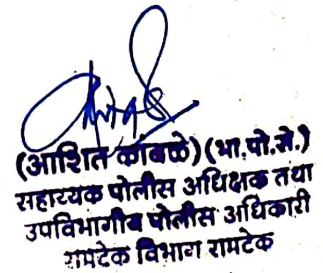 (आशित कांबळे) (भा.पो.से.)
सहाय्यक पोलीस अधिक्षक तथा
उपविभागीय पोलीस अधिकारी
रामटेक विभाग रामटेक